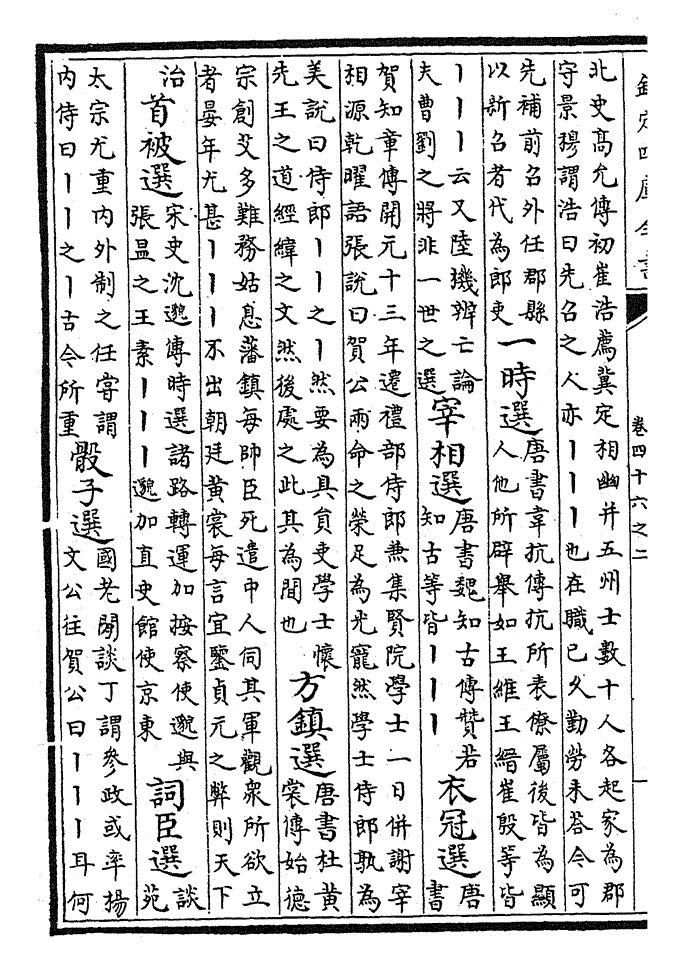 欽定四庫全書
卷四十六之二
一
北史髙允傳初崔浩薦冀定相幽并五州士數十人各起家為郡
守景穆謂浩曰先召之人亦丨丨丨也在職已久勤勞未荅今可
先補前召外任郡縣
以新召者代為郎吏
一時選
唐書韋抗傳抗所表僚屬後皆為顯
人他所辟舉如王維王縉崔殷等皆
丨丨丨云又陸機辨亡論
夫曹劉之將非一世之選
宰相選
唐書魏知古傳贊若
知古等皆丨丨丨
衣冠選
唐
書
賀知章傳開元十三年遷禮部侍郎兼集賢院學士一日併謝宰
相源乾曜語張說曰賀公兩命之榮足為光寵然學士侍郎孰為
美說曰侍郎丨丨之丨然要為具員吏學士懷
先王之道經緯之文然後處之此其為間也
方鎮選
唐書杜黄
裳傳始德
宗創艾多難務姑息藩鎮每帥臣死遣中人伺其軍觀衆所欲立
者晏年尤甚丨丨丨不出朝廷黄裳每言宜鑒貞元之弊則天下
治
首被選
宋史沈邈傳時選諸路轉運加按察使邈與
張昷之王素丨丨丨邈加直史館使京東
詞臣選
談
苑
太宗尤重内外制之任嘗謂
内侍曰丨丨之丨古今所重
骰子選
國老閒談丁謂參政或率楊
文公往賀公曰丨丨丨耳何